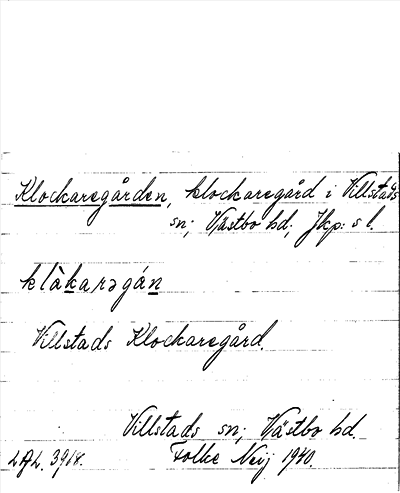 Klockaregården, klockaregård i Villstads
sn; Västbo hd; Jkp: s l.
klàkarəgán
Villstads Klockaregård.
Villstads sn; Västbo hd.
Folke Neij 1940.